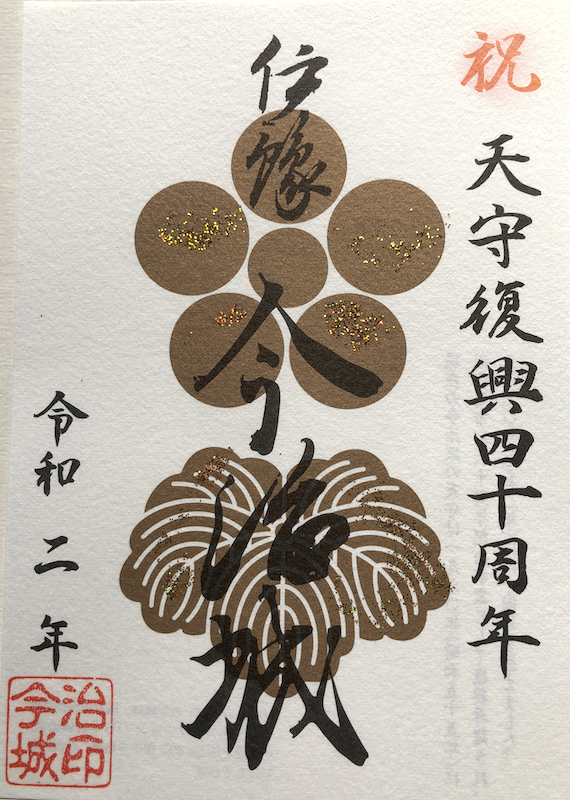 祝
天守復興四十周年
伊豫
今治城
令和二年
今治
城印